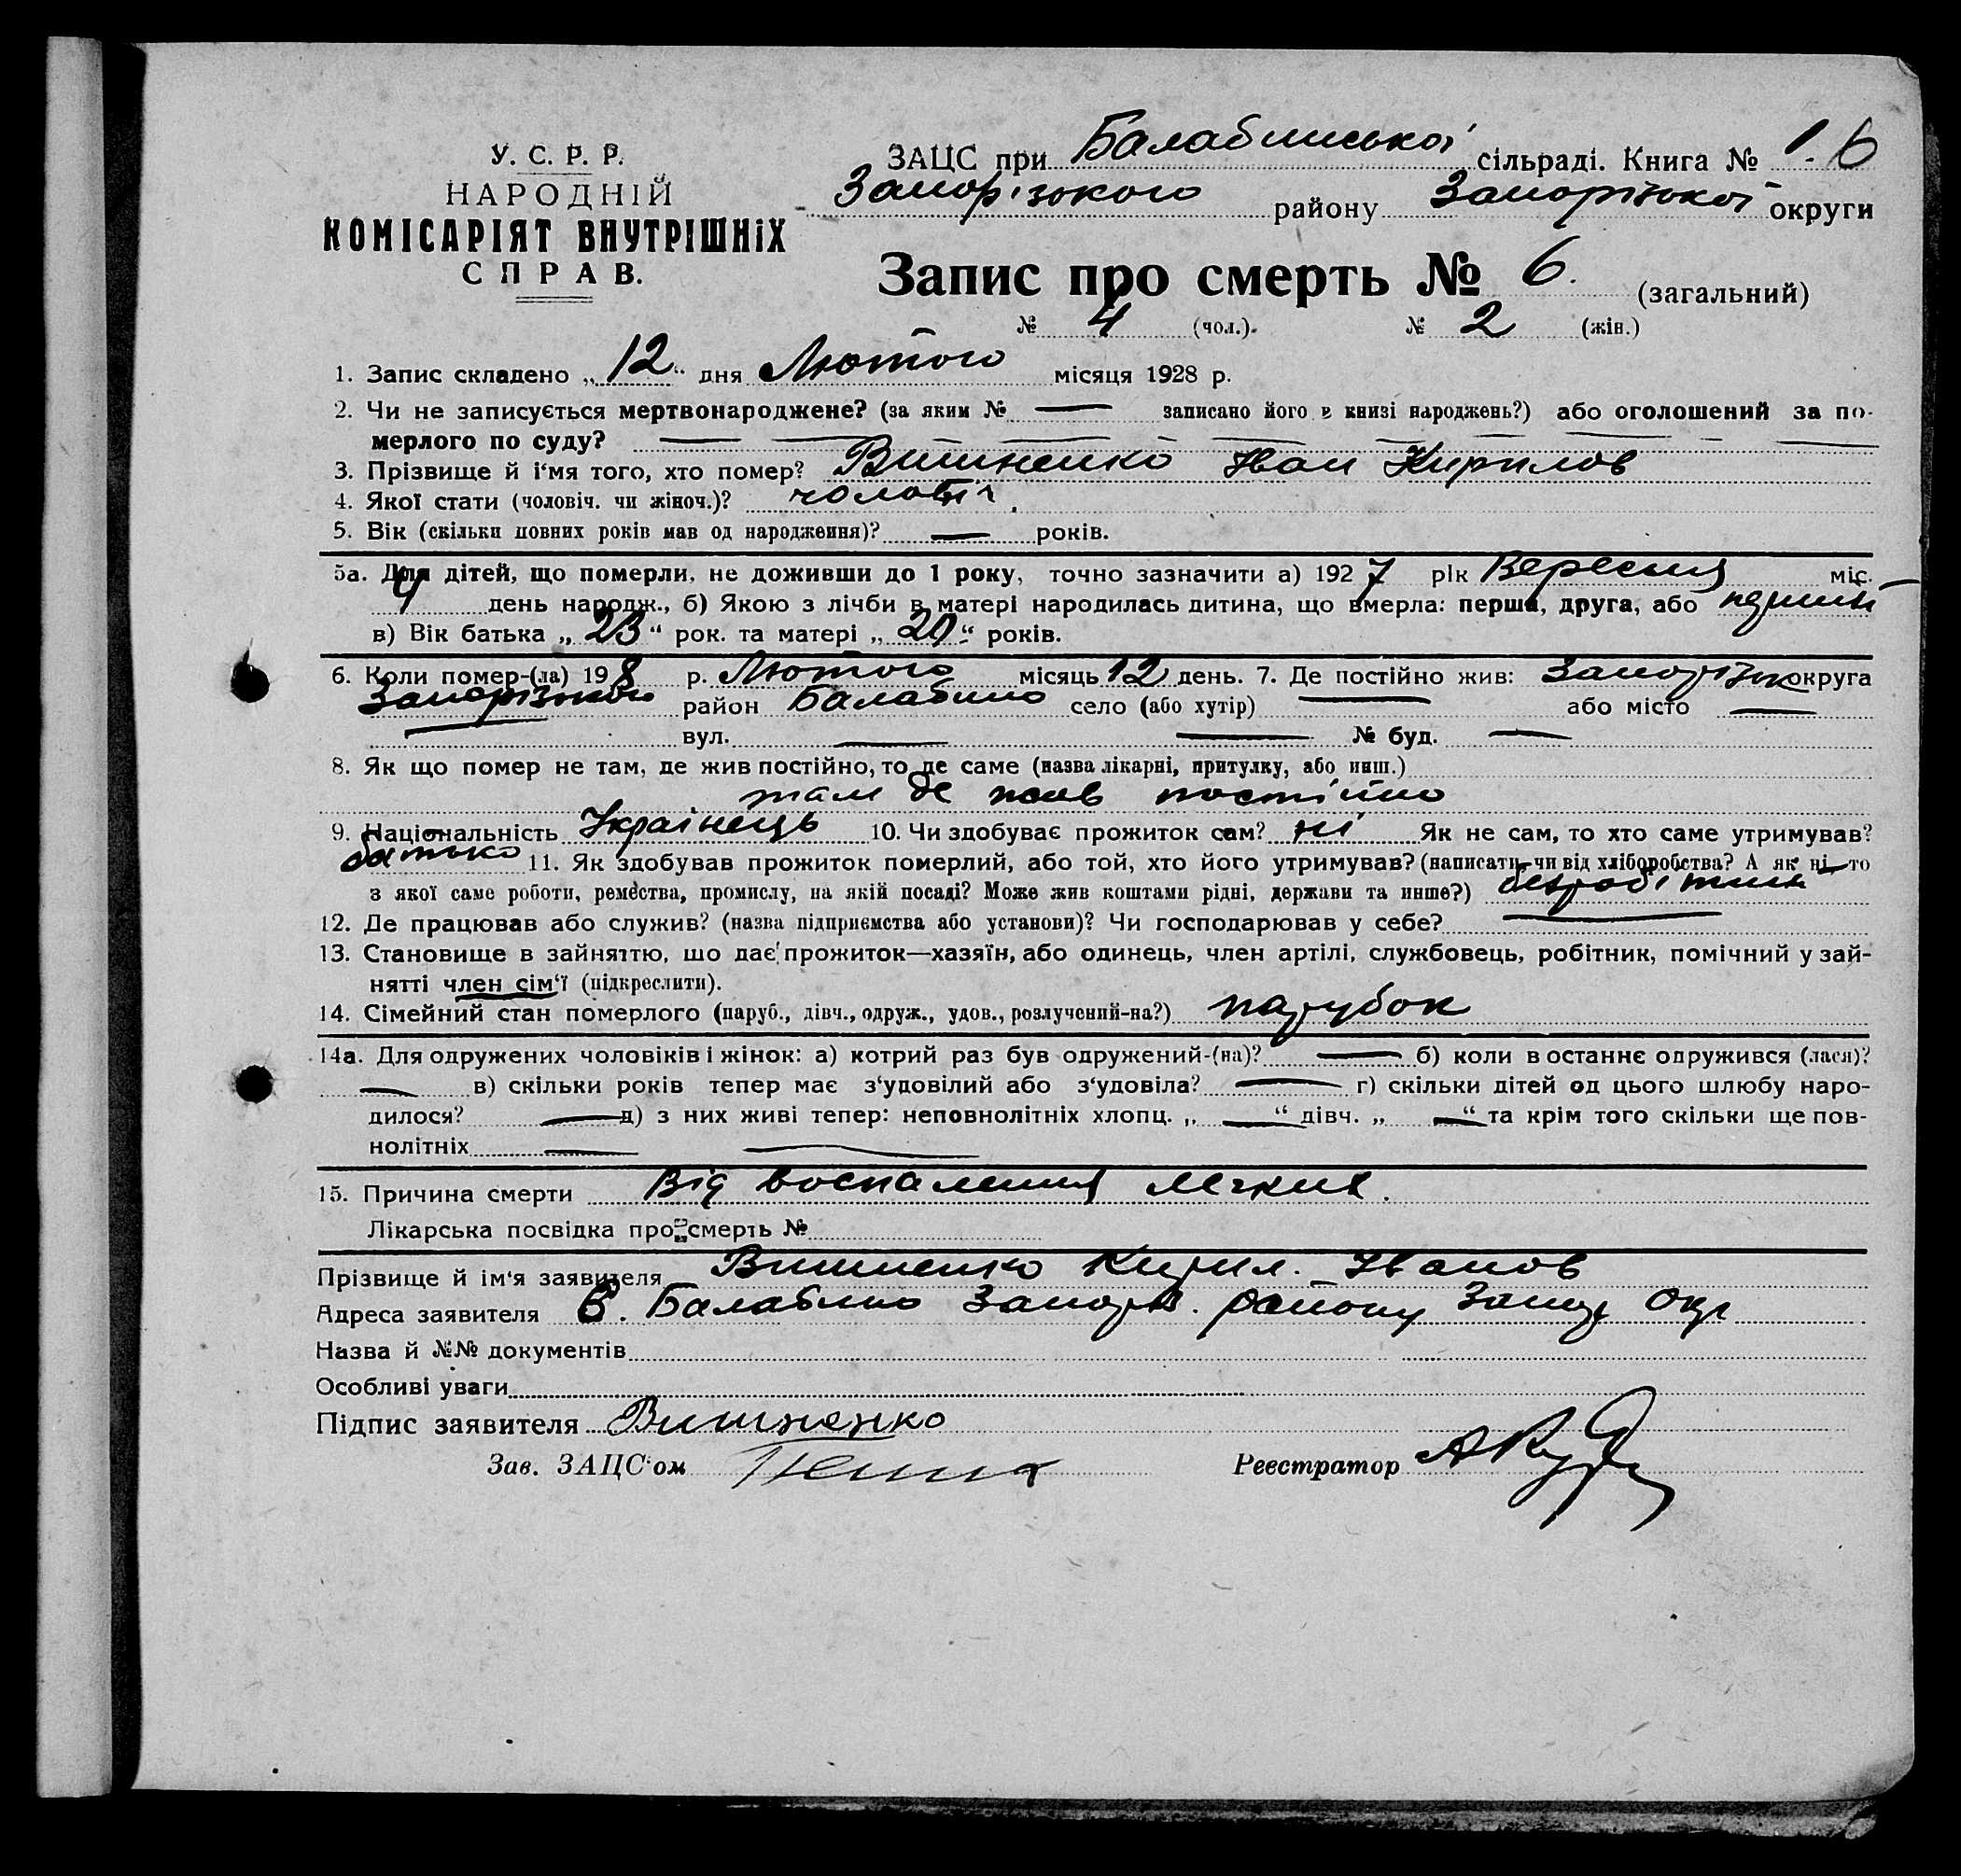 У. С. Р. Р.
НАРОДНІЙ
КОМІСАРІЯТ ВНУТРІШНІХ
СПРАВ.
ЗАЦС при Балабинської сільраді. Книга № 1. 6
Запорізького району Запорізької округи
Запис про смерть № 6. (загальний)
№ 4 (чол.). № 2 (жін.)
1. Запис складено „12“ дня Лютого місяця 1928 р.
2. Чи не записується мертвонароджене? (за яким № — записано його в книзі народжень?) або оголошений за по-
мерлого по суду? — — — — — — — — — —
3. Прізвище й і‘мя того, хто помер? Вишненко Іван Кирилов
4. Якої стати (чоловіч. чи жіноч.)? чоловіч.
5. Вік (скільки повних років мав од народження)? — років.
5а. Для дітей, що померли, не доживши до 1 року, точно зазначити а) 1927 рік Вересня міс.
4 день народж., б) Якою з лічби в матері народилась дитина, що вмерла: перша, друга, або
в) Вік батька „23“ рок. та матері „20“ років.
6. Коли помер-(ла) 198 р. Лютого місяць 12 день. 7. Де постійно жив: Запорізьк округа
Запорізького район Балабино село (або хутір) — або місто —
— вул. — — № буд. —
8. Як що помер не там, де жив постійно, то де саме (назва лікарні, притулку, або инш.)
там де жив постійно
9. Національність Українець 10. Чи здобуває прожиток сам? ні Як не сам, то хто саме утримував?
батько 11. Як здобував прожиток померлий, або той, хто його утримував? (написати чи від хліборобства? А як ні—то
з якої саме роботи, ремества, промислу, на якій посаді? Може жив коштами рідні, держави та инше?) безробітний
12. Де працював або служив? (назва підприємства або установи)? Чи господарював у себе? —
13. Становище в зайняттю, що дає прожиток—хазяїн, або одинець, член артілі, службовець, робітник, помічний у зай-
нятті член сім‘ї (підкреслити).
14. Сімейний стан померлого (паруб., дівч., одруж., удов., розлучений-на?) парубок
14а. Для одружених чоловіків і жінок: а) котрий раз був одружений-(на)? — б) коли в останнє одружився (лася)?
— в) скільки років тепер має з‘удовілий або з‘удовіла? — г) скільки дітей од цього шлюбу наро-
дилося? — д) з них живі тепер: неповнолітніх хлопц. „—“ дівч. „—“ та крім того скільки ще пов-
нолітніх — —
15. Причина смерти Від воспаления легких.
Лікарська посвідка про смерть №
Прізвище й ім‘я заявителя Вишненко Кирил. Іванов
Адреса заявителя С. Балабино Запоріз. району Запор Окр
Назва й №№ документів
Особливі уваги
Підпис заявителя Вишненко
Зав. ЗАЦС‘ом
Реєстратор